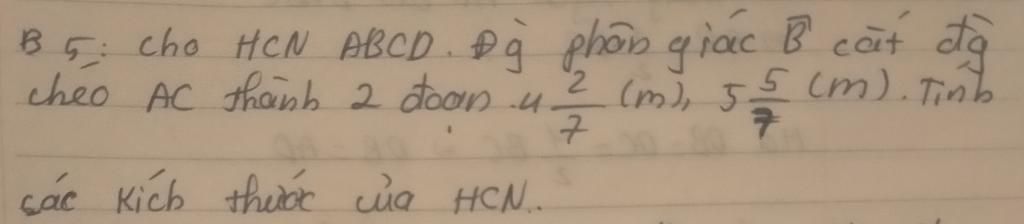 B 5: Cho HCN ABCD. Đg phân giác B̂ cắt đg
chéo AC thành 2 đoạn 4 2/7 (m), 5 5/7 (m). Tính
các kích thước của HCN..